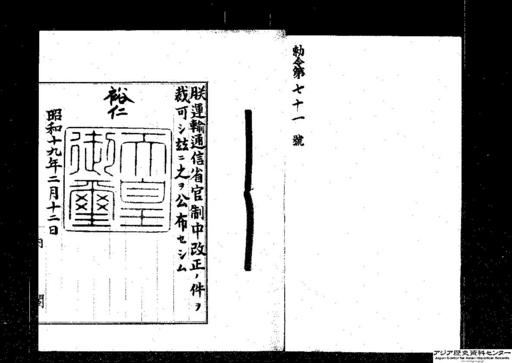 勅令第七十一號
朕運輸通信省官制中改正ノ件ヲ
裁可シ玆ニ之ヲ公布セシム
裕仁
天皇御璽
昭和十九年二月十二日
アジア歴史資料センター
Japan Center for Asian Historical Records